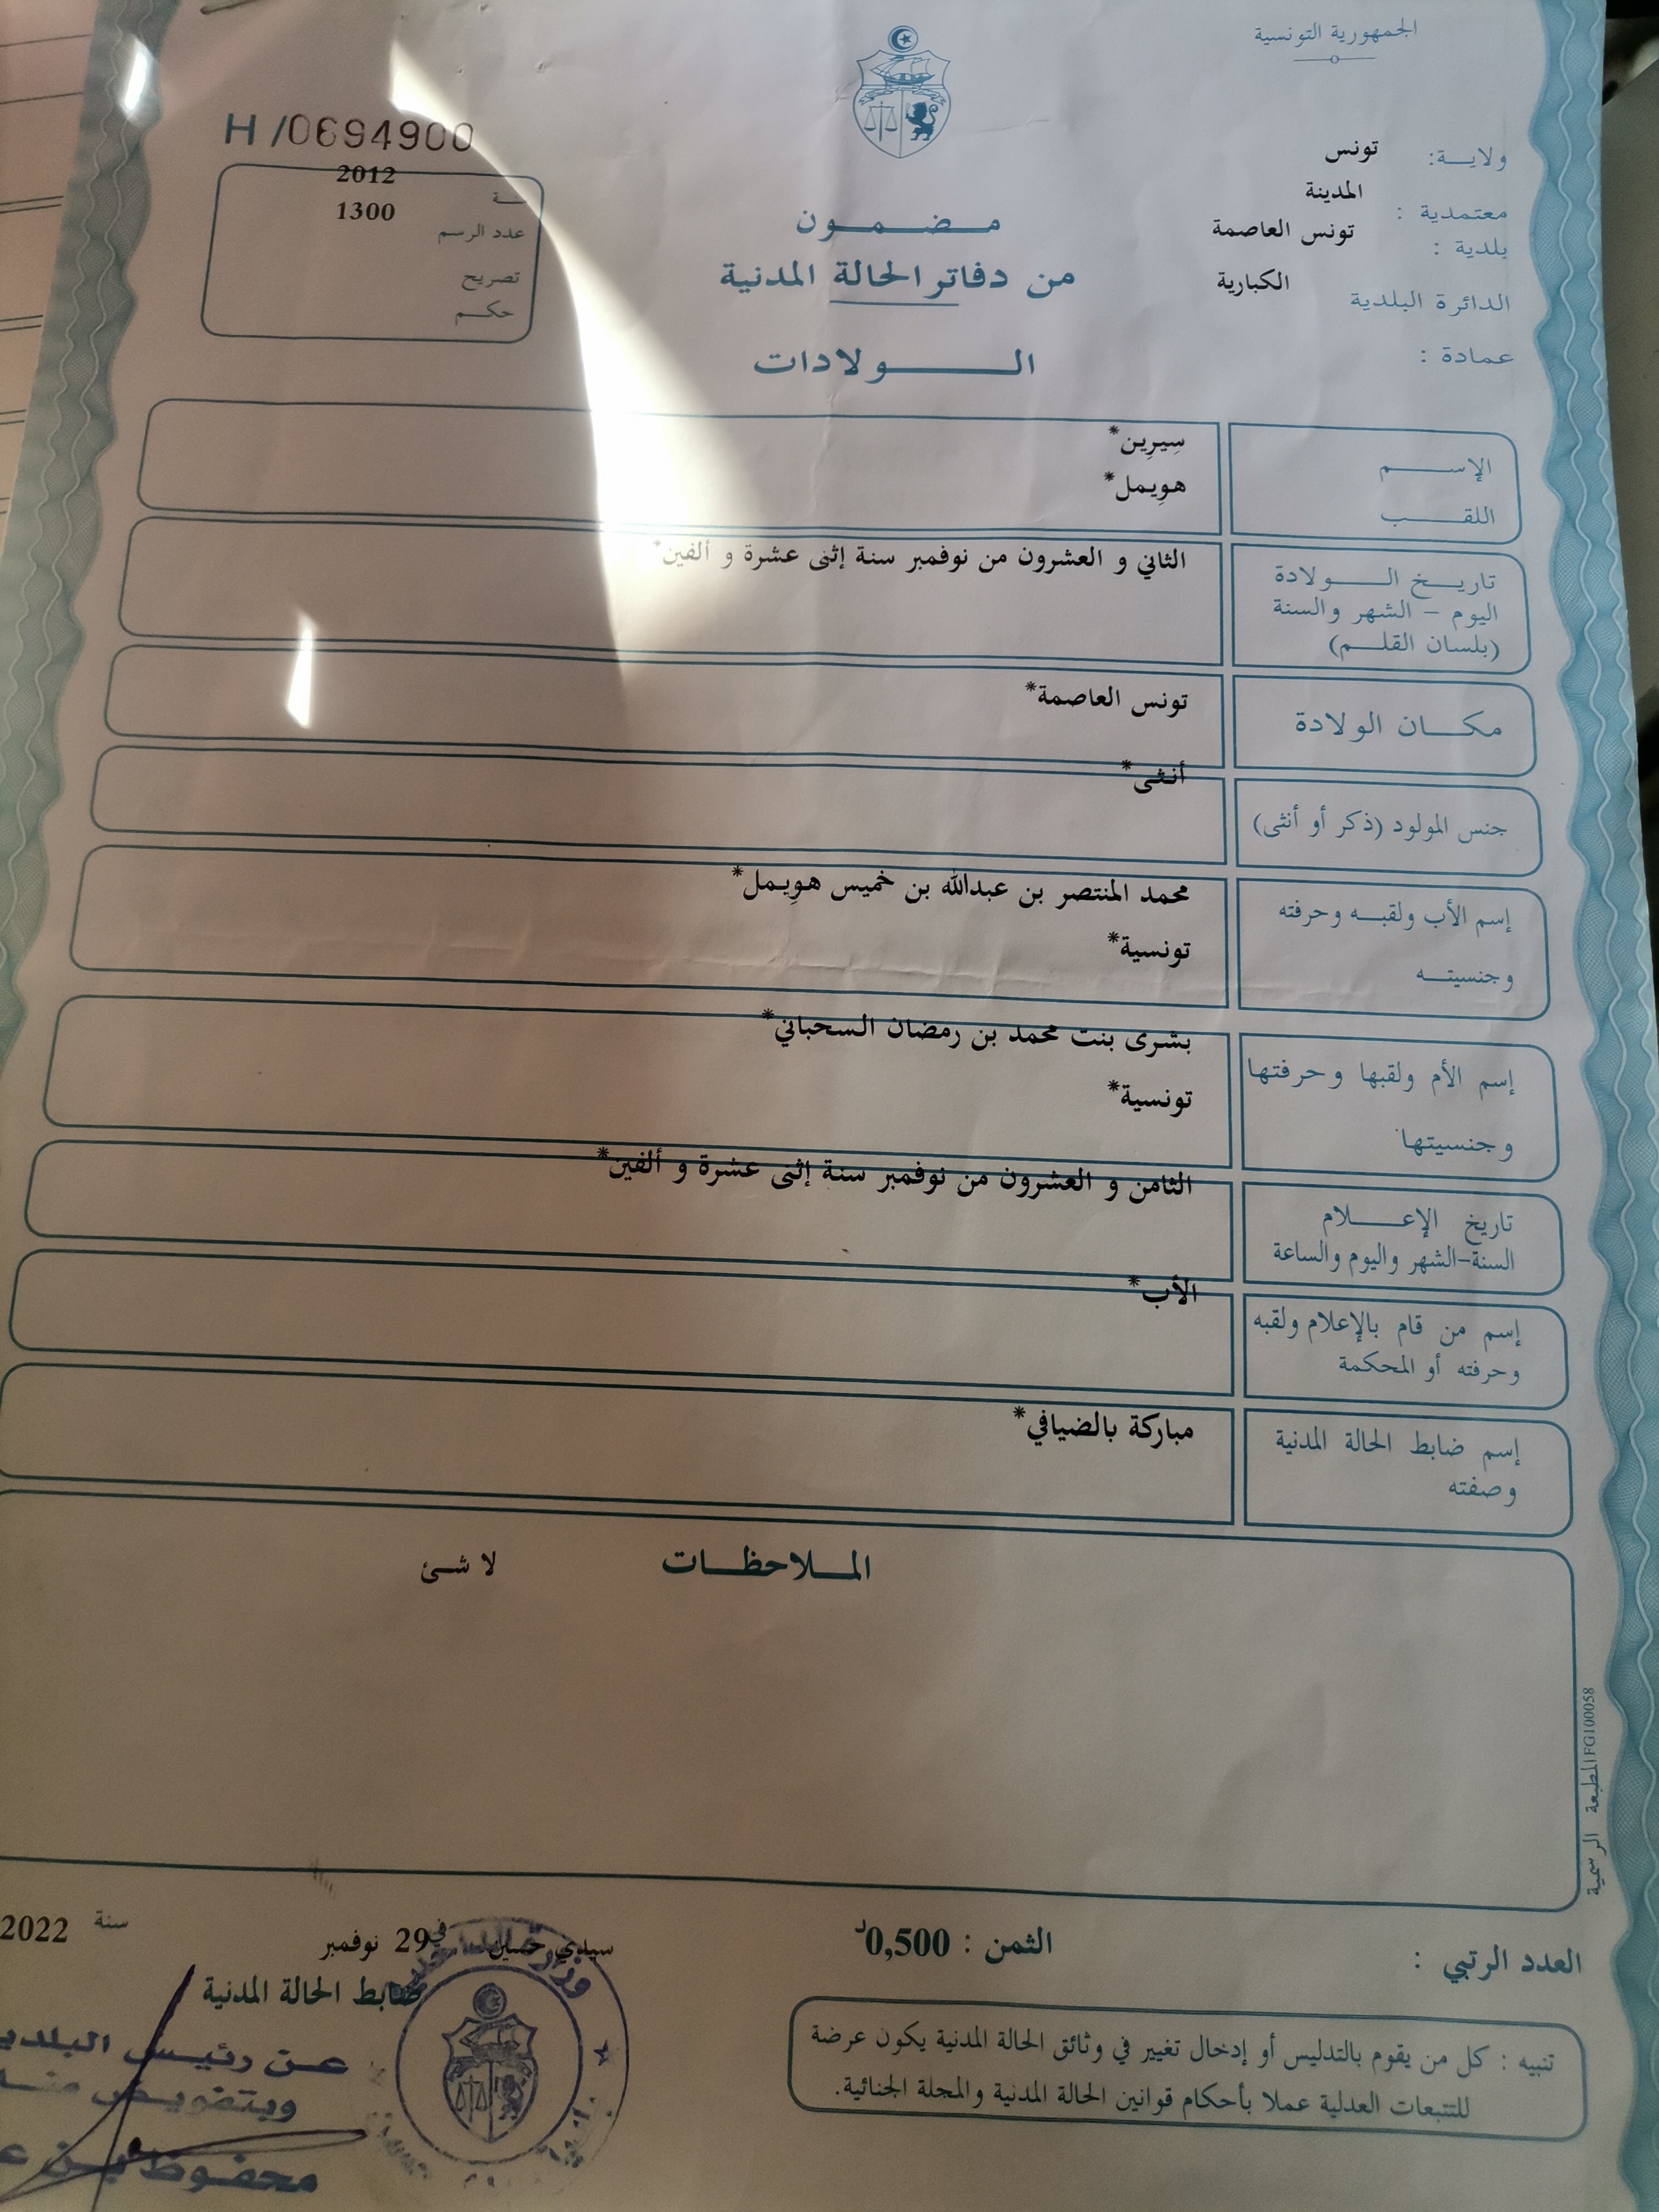 الجمهورية التونسية
H/0694900
ولاية: تونس
معتمدية : المدينة
بلدية : تونس العاصمة
الدائرة البلدية الكبارية
عمادة :
2012
عدد الرسم 1300
تصريح
حكم
مضمون
من دفاتر الحالة المدنية
الولادات
الإسم سِيرِين*
اللقب هوِيمل*
تاريخ الولادة
اليوم - الشهر والسنة
(بلسان القلم)
الثاني و العشرون من نوفمبر سنة إثنى عشرة و ألفين*
مكان الولادة تونس العاصمة*
جنس المولود (ذكر أو أنثى) أنثى*
إسم الأب ولقبه وحرفته محمد المنتصر بن عبدالله بن خميس هوِيمل*
وجنسيته تونسية*
إسم الأم ولقبها وحرفتها بشرى بنت محمد بن رمضان السحباني*
وجنسيتها تونسية*
تاريخ الإعلام
السنة-الشهر واليوم والساعة
الثامن و العشرون من نوفمبر سنة إثنى عشرة و ألفين*
إسم من قام بالإعلام ولقبه
وحرفته أو المحكمة
الأب*
إسم ضابط الحالة المدنية
وصفته
مباركة بالضيافي*
الملاحظات لا شئ
المطبعة الرسمية FG100058
العدد الرتبي :
الثمن : 0,500د
سيدي حسين في 29 نوفمبر سنة 2022
ضابط الحالة المدنية
عن رئيس
وبتفويض منه
محفوظ بن
تنبيه : كل من يقوم بالتدليس أو إدخال تغيير في وثائق الحالة المدنية يكون عرضة
للتتبعات العدلية عملا بأحكام قوانين الحالة المدنية والمجلة الجنائية.